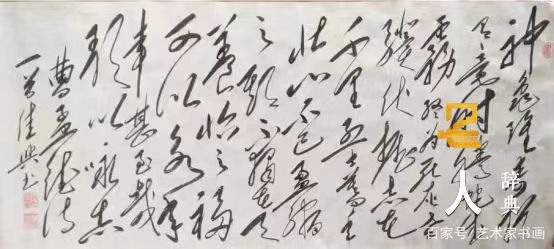 神龟虽寿猶
有竟时腾蛇乘
雾终为死灰老
骥伏枥志在
千里烈士暮年
壮心不已盈缩
之期不独在天
养怡之福
可以永年
幸甚至哉
歌以咏志
曹孟德诗
人
辞典
百家号/艺术家书画